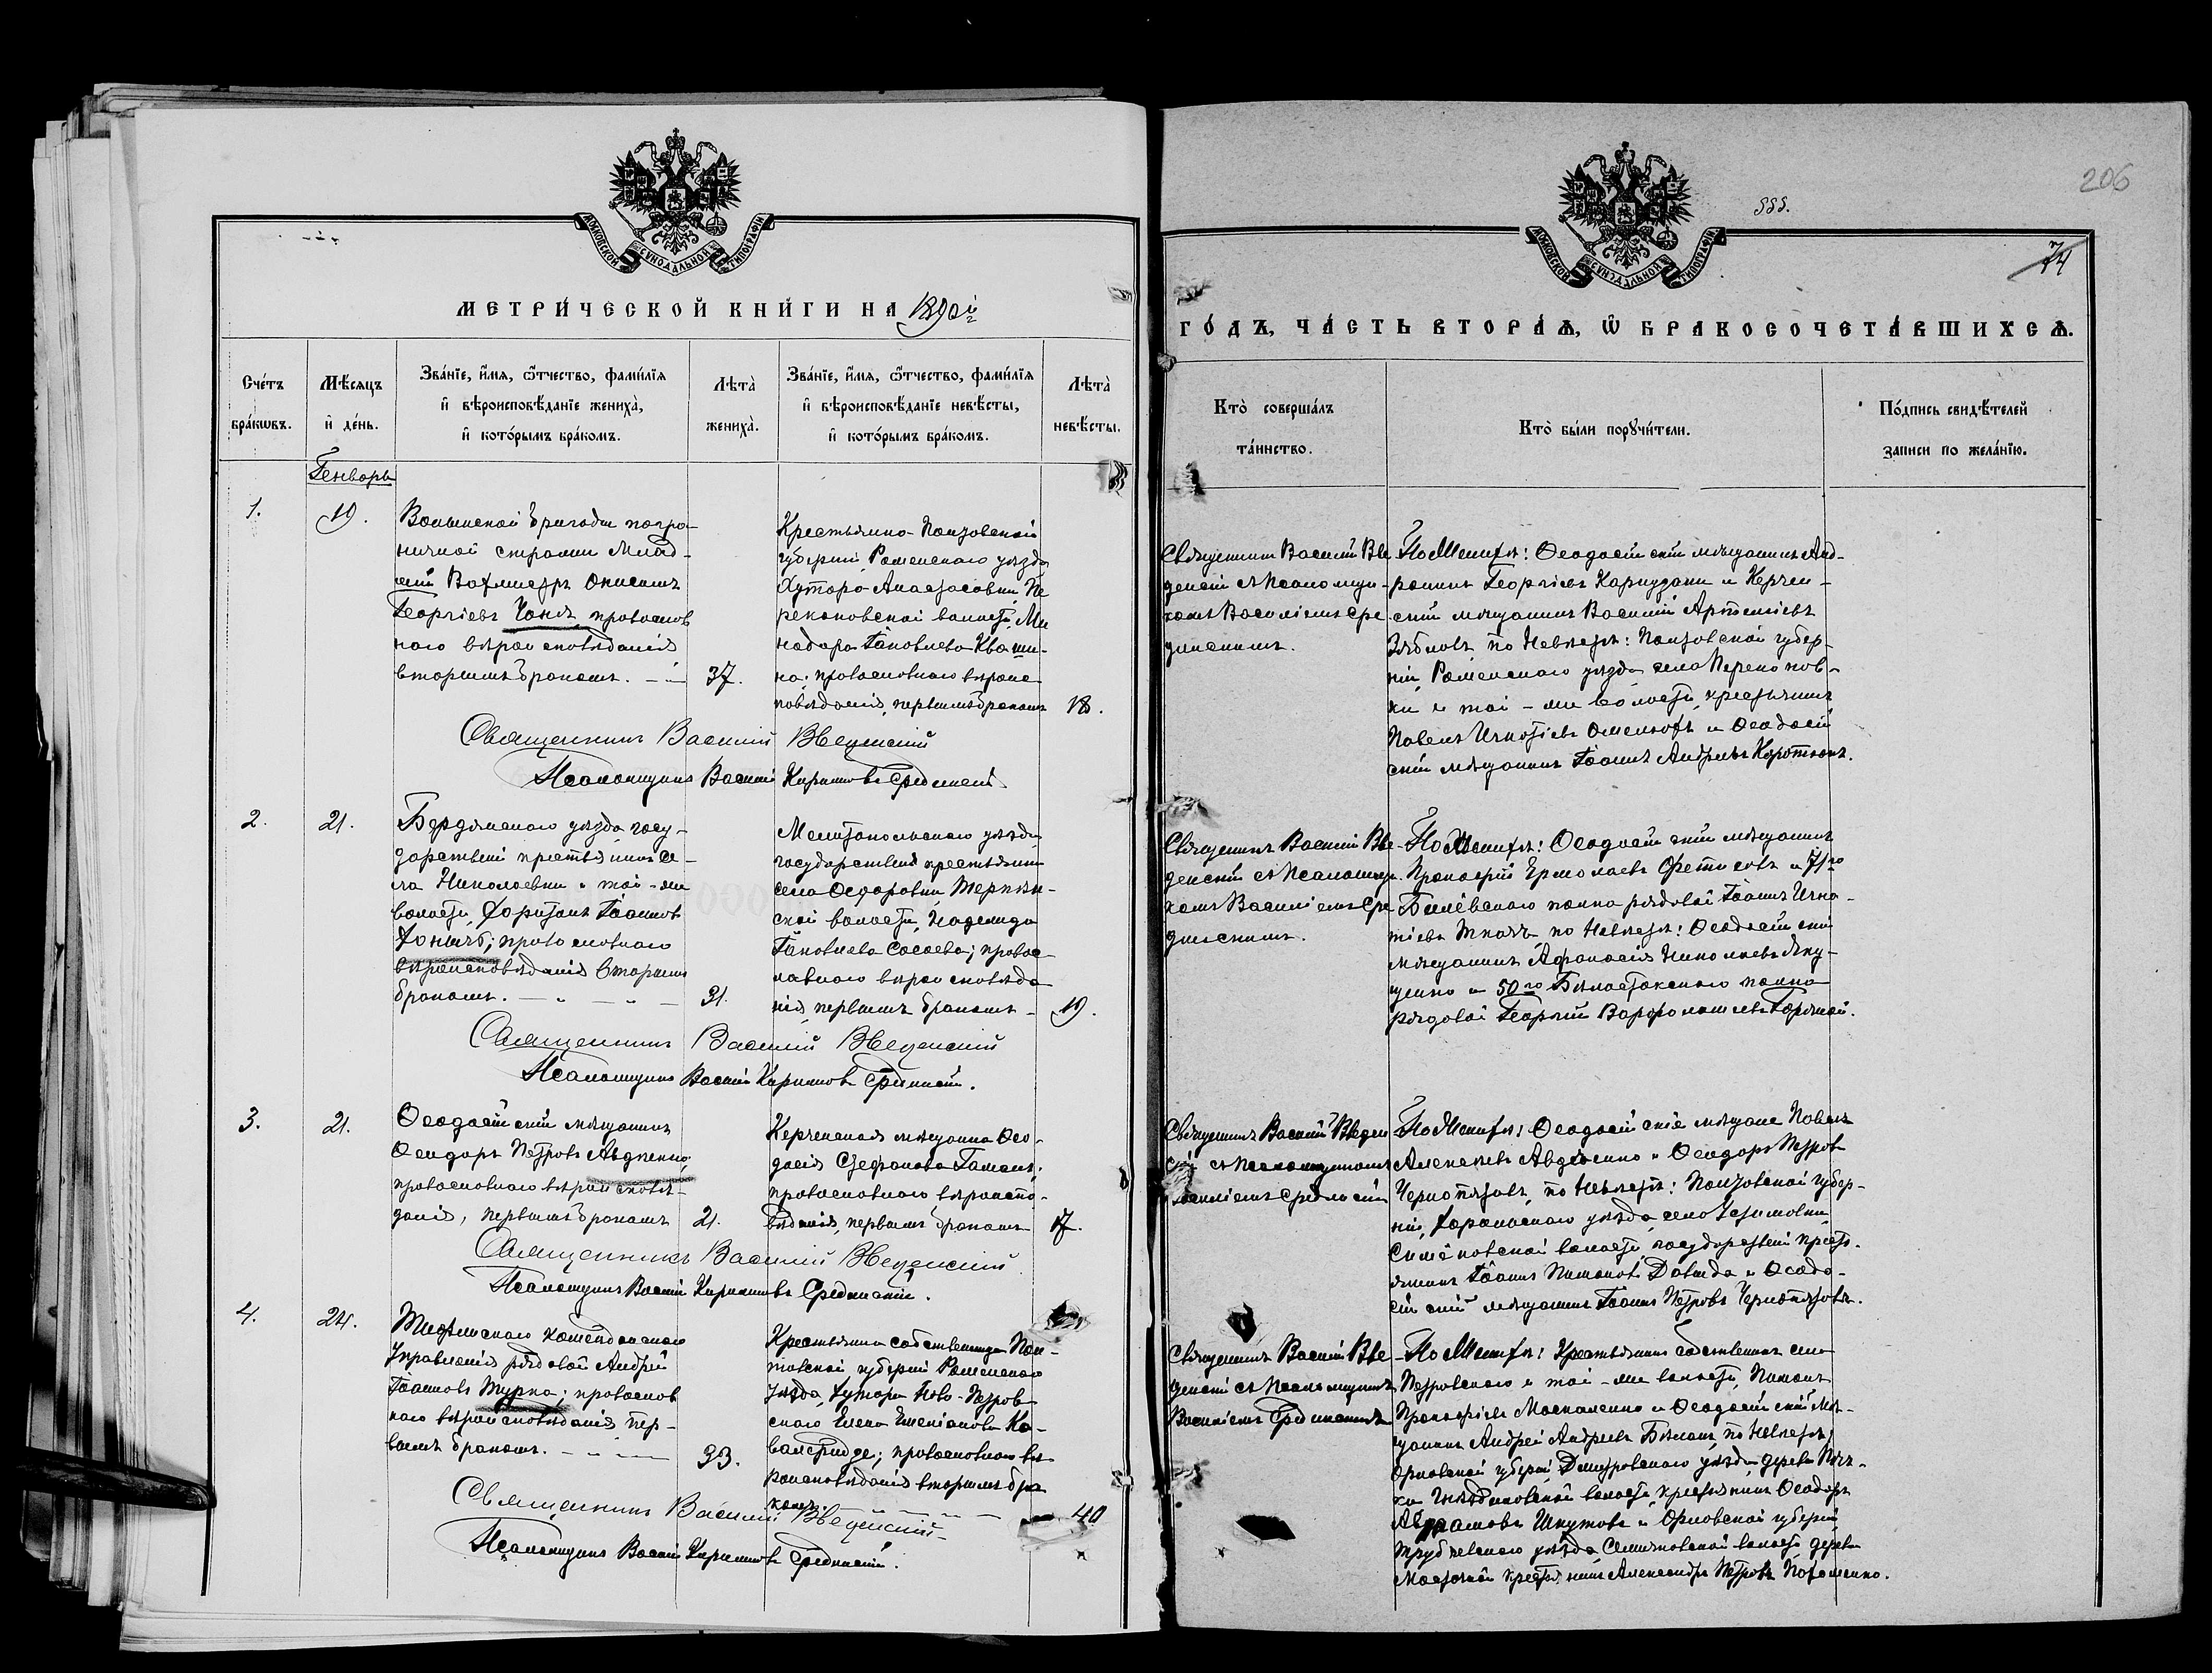 МОСКОВСКОЙ СѴНОДАЛЬНОЙ ТИПОГРАФІИ
МЕТРИ́ЧЕСКОЙ КНИ́ГИ НА 1890й
Сче́тъ бра́кѡвъ.
Мѣ́сяцъ и҆ де́нь.
Зва́нїе, и҆́мя, ѻ҆́тчество, фами́лїя
и҆ вѣроисповѣ́данїе жениха̀,
и҆ кото́рымъ бра́комъ.
Лѣта̀ жениха̀.
Зва́нїе, и҆́мя, ѻ҆́тчество, фами́лїя
и҆ вѣроисповѣ́данїе невѣ́сты,
и҆ кото́рымъ бра́комъ.
Лѣта̀ невѣ́сты.
Генварь
1.
19.
Волынской бригады погра-
ничной стражи Млад-
шій Вахмистръ Онисимъ
Георгіевъ православ
наго вѣроисповѣданія
вторымъ бракомъ.
37.
Крестьянка Полтовской
губерніи, Роменскаго уѣзда
Хутора Анастасовки, Пе
рекоповской волости, Ми
надора Іаковлева Кваши-
на; православнаго вѣроис
повѣданія, первымъ бракомъ
18.
Священникъ Василій Введенскій
Псаломщикъ Василій Кириловъ Срединскій
2.
21.
Бердянскаго уѣзда госу-
дарствен крестьянинъ се-
ла Николаевки и той-же
волости, Харитонъ Іоанновъ
православнаго
вѣроисповѣданія вторымъ
бракомъ.
31.
Мелитопольскаго уѣзда
государствен крестьянка
села Ѳедоровки, Терпѣн-
ской волости,
Іаковлева Сосаева; правос-
лавнаго вѣроисповѣда
нія, первымъ бракомъ
19.
Священникъ Василій Введенскій
Псаломщикъ Василій Кириловъ Срединскій.
3.
21.
Ѳеодосійскій мѣщанинъ
Ѳеодоръ Петровъ Авдѣенко,
православнаго вѣроисповѣ-
данія, первымъ бракомъ
21.
Керченская мѣщанка Ѳео-
досія Стефанова
православнаго вѣроиспо-
вѣданія, первымъ бракомъ
17.
Священникъ Василій Введенскій
Псаломщикъ Василій Кириловъ Срединскій.
4.
24.
Тифлискаго комендантскаго
Управленія рядовой Андрей
Іоанновъ Турка; православ
наго вѣроисповѣданія пер-
вымъ бракомъ.
33.
Крестьянка собственница Пол-
товской губерніи Роменскаго
уѣзда, хутора Ново-Петров
скаго Елена Емеліанова
православнаго вѣ
роисповѣданія вторымъ бра
комъ.
40
Священникъ Василій Введенскій
Псаломщикъ Василій Кириловъ Срединскій.
206
555.
74
МОСКОВСКОЙ СѴНОДАЛЬНОЙ ТИПОГРАФІИ
ГО́ДЪ, ЧА́СТЬ ВТОРА́Ѧ, Ѡ҆ БРАКОСОЧЕТА́ВШИХСѦ.
Кто̀ соверша́лъ та́инство.
Кто̀ бы́ли порꙋчи́тели.
По́дпись свидѣ́телей записи по жела́нїю.
Священникъ Василій Вве
денскій съ Псаломщи-
комъ Василіемъ Сре
динскимъ.
По Женихѣ: Ѳеодосійскій мѣщанинъ Анд-
роникъ Георгіевъ и Керчен-
скій мѣщанинъ Василій Артеміевъ
Зябловъ по Невѣстѣ: Полтовской губер-
ніи, Роменскаго уѣзда села Перекопов-
ки и той-же волости, крестьянинъ
Павелъ Игнатіевъ и Ѳеодосій
скій мѣщанинъ Іоаннъ Андреевъ
Священникъ Василій Вве
денскій съ Псаломщи
комъ Василіемъ Сре
динскимъ.
По Женихѣ: Ѳеодосійскій мѣщанинъ
Прокофій Ермолаевъ Фетисовъ и 71го
Белёвскаго полка рядовой Іоаннъ Игна-
тіевъ по Невѣстѣ: Ѳеодосійскій
мѣщанинъ Афанасій Николаевъ
и 50го Бѣлостокскаго полка
рядовой Георгій Варфоломеевъ
Священникъ Василій Введен
скій съ Псаломщикомъ
Василіемъ Срединскимъ
По Женихѣ: Ѳеодосійскіе мѣщане Павелъ
Алексѣевъ Авдѣенко и Ѳеодоръ Петровъ
по Невѣстѣ: Полтовской губер-
ніи, Хорольскаго уѣзда, села Устимовки,
волости государствен кресть-
янинъ Іоаннъ Давида и Ѳеодо-
сійскій мѣщанинъ Іоаннъ Петровъ
Священникъ Василій Вве
денскій съ Псаломщикомъ
Василіемъ Срединскимъ
По Женихѣ: Крестьянинъ собственникъ села
Петровскаго и той-же волости,
Прокофіевъ Москаленко и Ѳеодосійскій мѣ-
щанинъ Андрей Андреевъ по Невѣстѣ,
Орловской губерніи Дмитровскаго уѣзда, деревни
волости, крестьянинъ Ѳеодоръ
Авраамовъ Шкутовъ и Орловской губерніи
Трубчевскаго уѣзда, Семячковской волости, деревни
крестьянинъ Александръ Петровъ